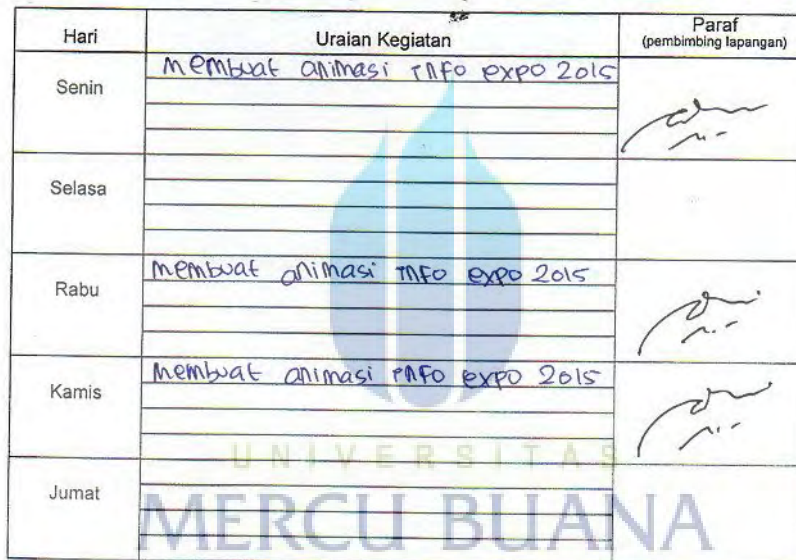 Hari Uraian Kegiatan Paraf
(pembimbing lapangan)
Senin membuat animasi info expo 2015
Selasa
Rabu membuat animasi info expo 2015
Kamis membuat animasi info expo 2015
UNIVERSITAS
Jumat
MERCU BUANA